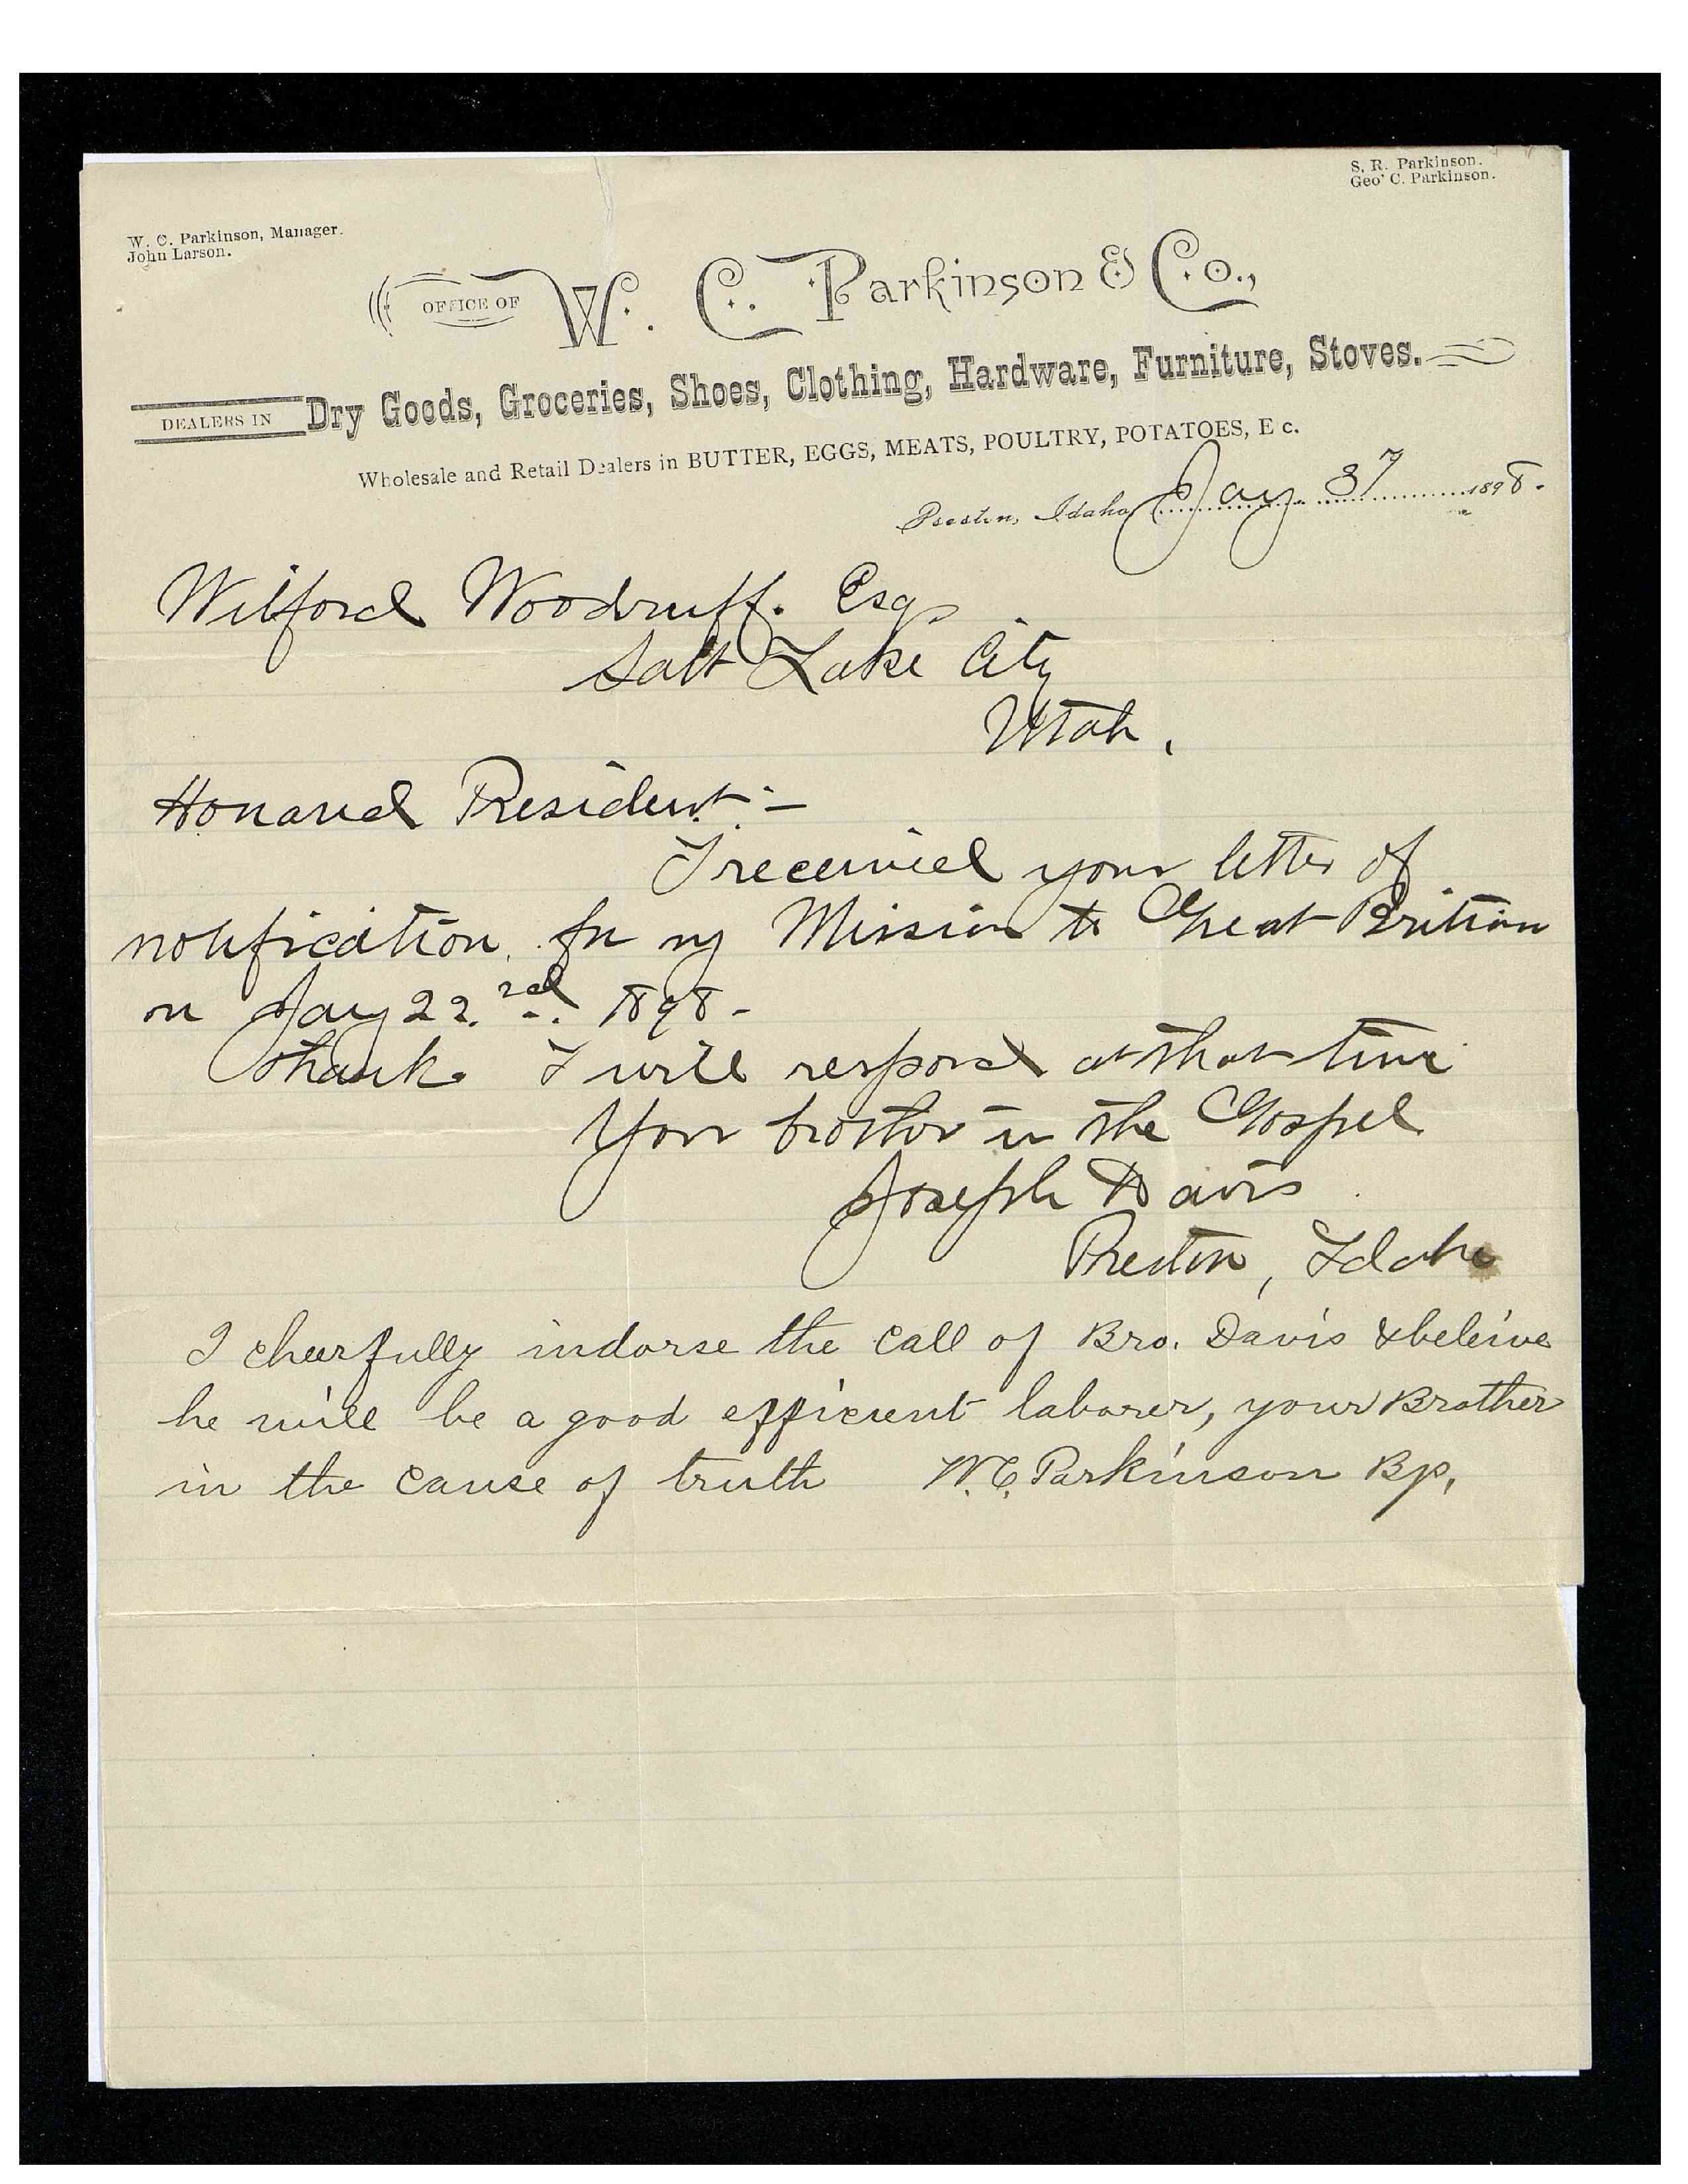 S. R. Parkinson.
Geo' C. Parkinson.
W. C. Parkinson, Manager.
John Larson.
OFFICE OF W. C. Parkinson & Co.,
DEALERS IN Dry Goods, Groceries, Shoes, Clothing, Hardware, Furniture, Stoves.
Wholesale and Retail Dealers in BUTTER, EGGS, MEATS, POULTRY, POTATOES, E c.
Preston, Idaho, Jay 1898.
Wilford Woodruff. Esq
Salt Lake City
Utah.
Honared President:-
I received your letter of
notification, for my Mission to Great Brition
on Jay 22nd 1898-
thank I will respond at that time
Your brother in the Gospel
Joseph Davis
Preston, Idaho
I cheerfully indorse the call of Bro. Davis & beleive
he will be a good efficient laborer, your Brother
in the cause of truth W. C. Parkinson Bp.